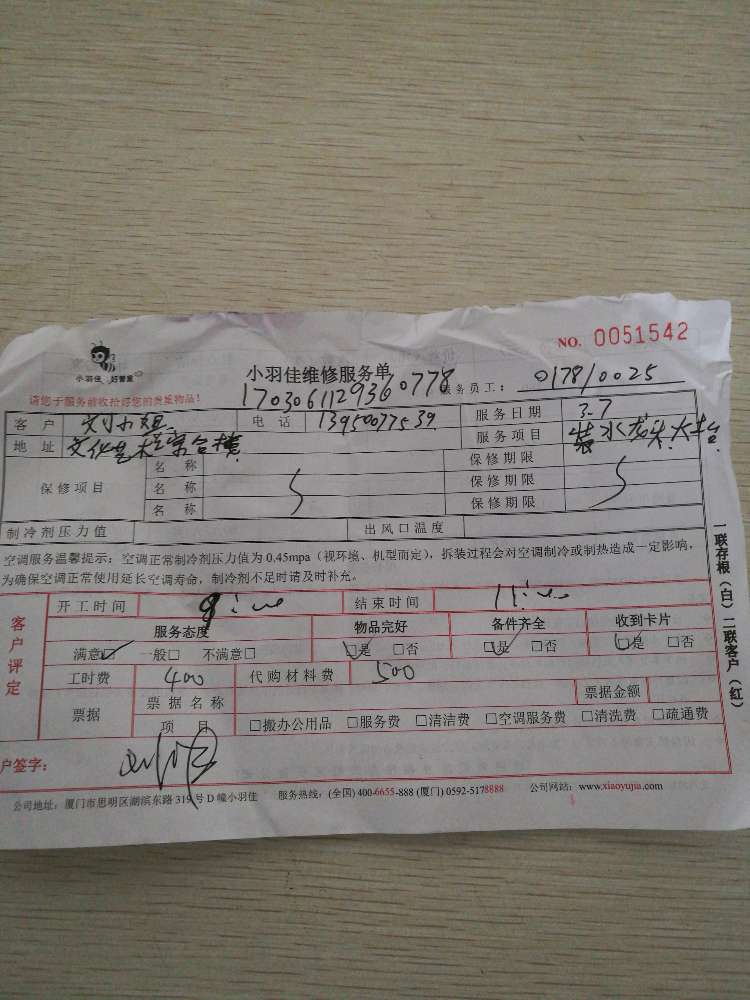 NO. 0051542
小羽佳 好管家
小羽佳维修服务单
170306112936 0778
服务员工: 0178/0025
请您于服务前收拾好您的贵重物品!
客户 刘小姐 电话 13950077539 服务日期 3.7
地址 文化艺术综合楼 服务项目 装水龙头
保修项目 名称 保修期限
名称 保修期限
名称 保修期限
制冷剂压力值 出风口温度
空调服务温馨提示: 空调正常制冷剂压力值为0.45mpa(视环境、机型而定), 拆装过程会对空调制冷或制热造成一定影响,
为确保空调正常使用延长空调寿命, 制冷剂不足时请及时补充。
客户评定
开工时间 结束时间
服务态度 物品完好 备件齐全 收到卡片
满意□ 一般□ 不满意□ □是 □否 □是 □否 □是 □否
工时费 400 代购材料费 500
票据 票据名称 票据金额
项目 □搬办公用品 □服务费 □清洁费 □空调服务费 □清洗费 □疏通费
户签字:
公司地址: 厦门市思明区湖滨东路319号D幢小羽佳 服务热线: (全国) 400-6655-888 (厦门) 0592-5178888 公司网站: www.xiaoyujia.com
一联存根(白)二联客户(红)